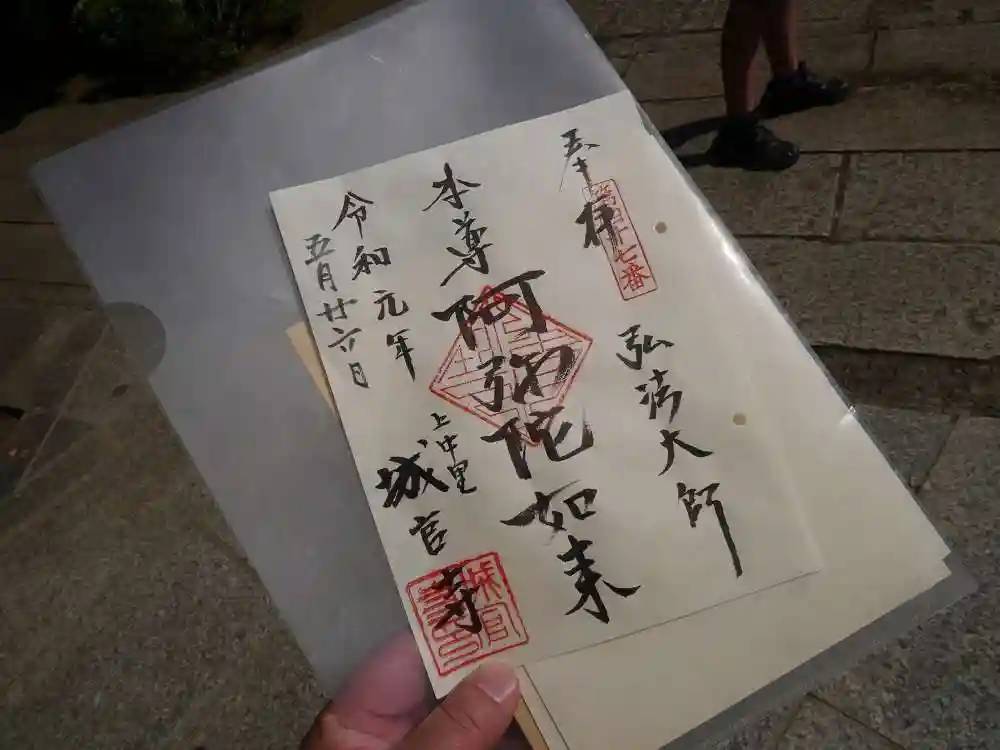 奉拝
第四十七番
弘法大師
本尊
阿弥陀如来
令和元年
五月廿六日
上中里
城官寺